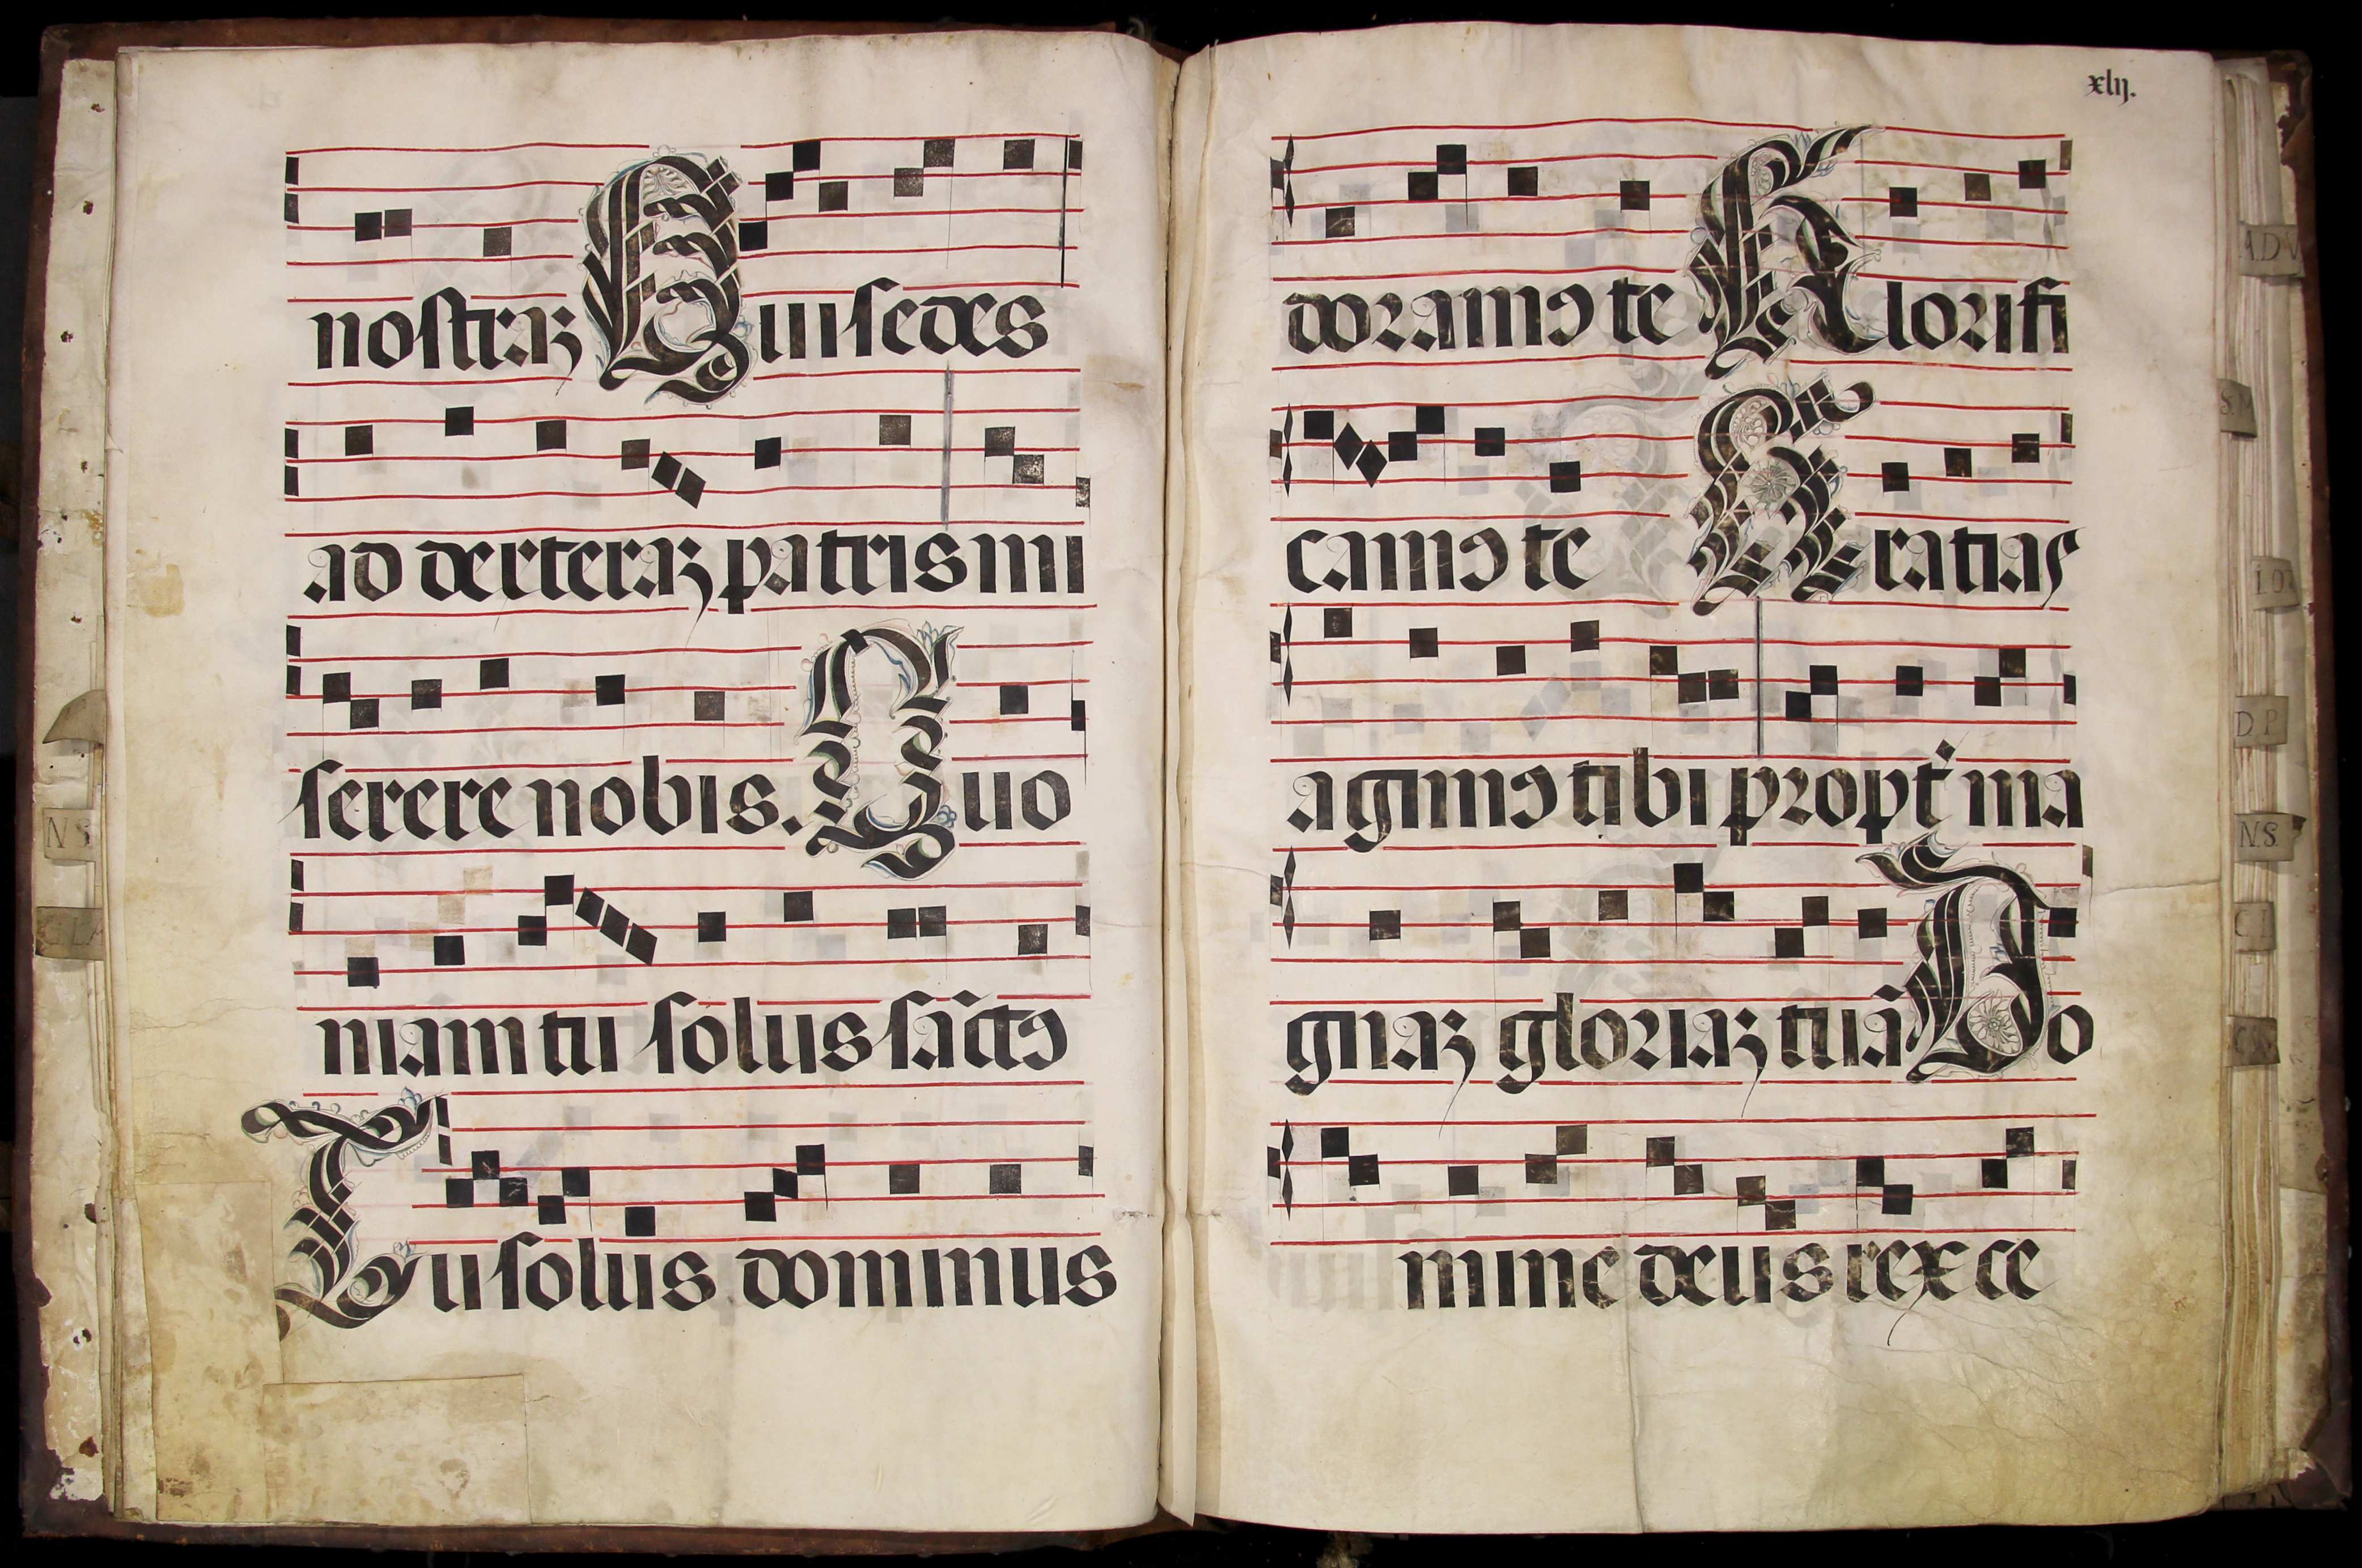 nostraz Qui sedes
ad dexteraz patris mi
serere nobis. Quo
niam tu solus sāctꝯ
Tu solus dominus
xlij.
doramꝯ te Glorifi
camꝯ te Gratias
agimꝯ tibi propt̉ ma
gnaz gloriaz tuā Do
mine deus rex ce
N S
S. M
D. P
N. S.